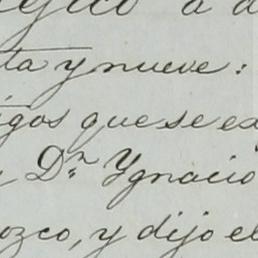 ta y nueve:
igos que se ex
Dn Ygnacio
ozco, y dijo el